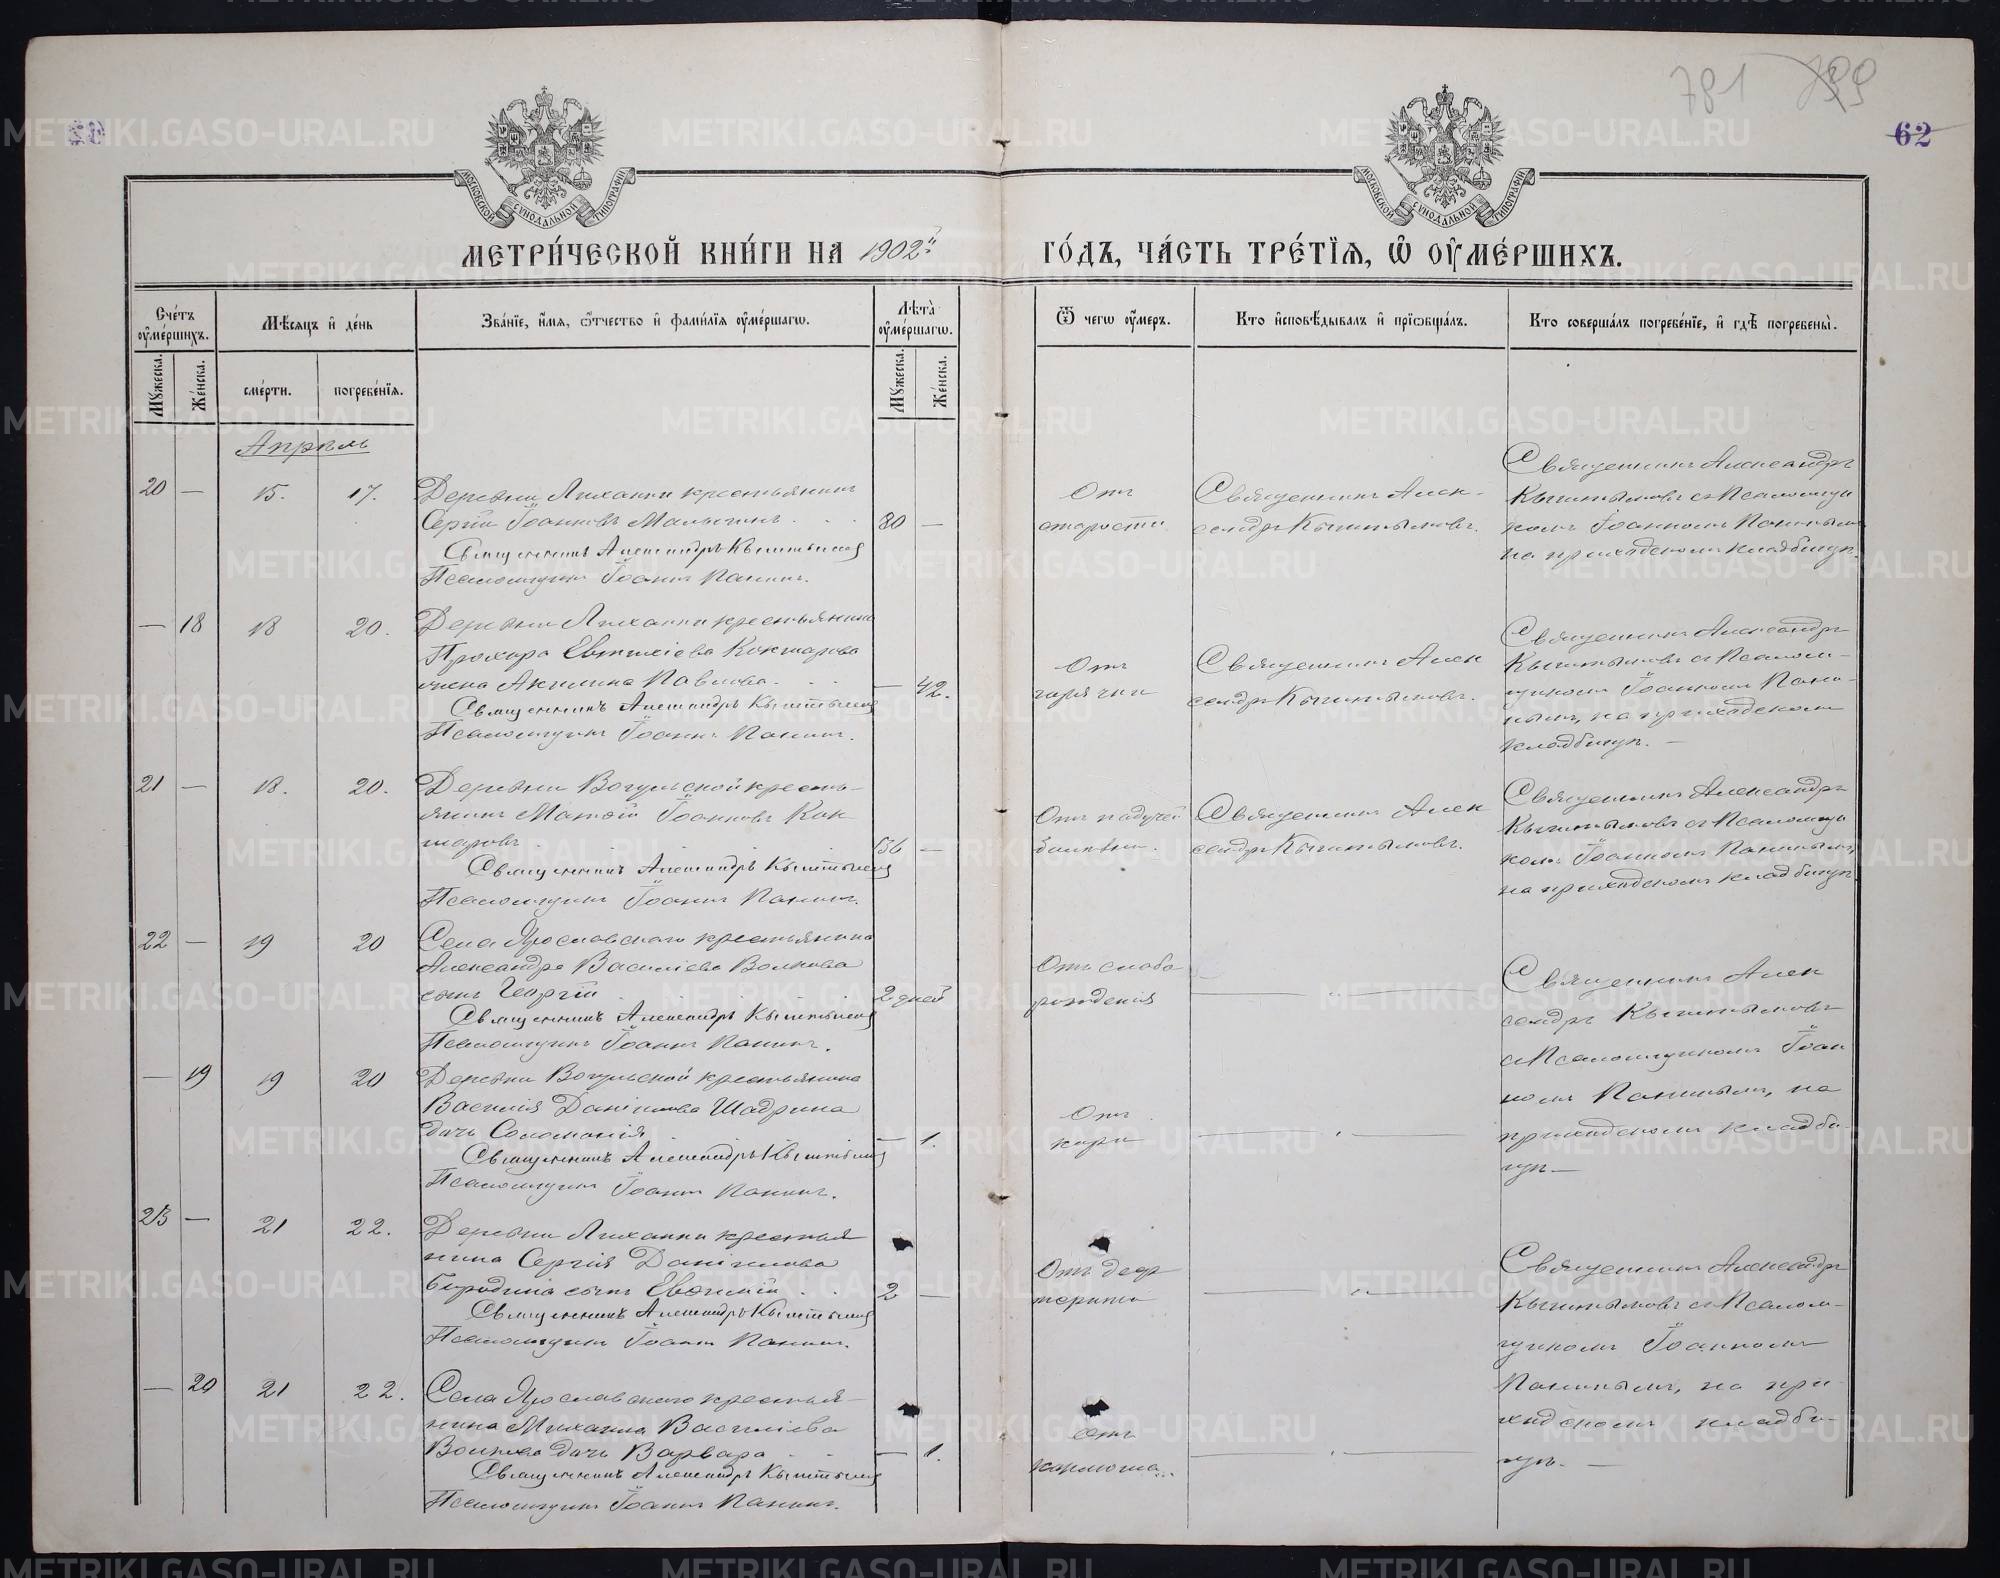 781 799
62
МОСКОВСКОЙ СѴНОДАЛЬНОЙ ТИПОГРАФІИ
МОСКОВСКОЙ СѴНОДАЛЬНОЙ ТИПОГРАФІИ
МЕТРИ́ЧЕСКОЙ КНИ́ГИ НА 1902й
ГО́ДЪ, ЧА́СТЬ ТРЕ́ТІѦ, Ѡ ОУМЕ́РШИХЪ.
Сче́тъ оуме́ршихъ.
Мѣсяцъ и де́нь
Зва́нїе, и́мя, о́тчество и фами́лїя оуме́ршагѡ.
Лѣта̀ оуме́ршагѡ.
Ѿ чегѡ оу́меръ.
Кто исповѣ́дывалъ и прїѡбща́лъ.
Кто соверша́лъ погребе́нїе, и гдѣ погребены̀.
Мꙋжеска.
Же́нска.
сме́рти.
погребе́нїя.
Мꙋжеска.
Же́нска.
Апрѣль
20 — 15. 17.
Деревни Луханки крестьянинъ
Сергій Іоанновъ Малыгинъ . . .
80 —
Священникъ Александръ Кыштымовъ
Псаломщикъ Іоаннъ Панинъ.
Отъ
старости.
Священникъ Алек-
сандръ Кыштымовъ.
Священникъ Александръ
Кыштымовъ съ Псаломщи
комъ Іоанномъ Панинымъ
на приходскомъ кладбищѣ.
— 18 18 20.
Деревни Луханки крестьянина
Прохора Евтихіева Кокшарова
жена Акилина Павлова. . .
— 42.
Священникъ Александръ Кыштымовъ
Псаломщикъ Іоаннъ Панинъ.
Отъ
горячки
Священникъ Алек
сандръ Кыштымовъ.
Священникъ Александръ
Кыштымовъ съ Псалом-
щикомъ Іоанномъ Пани-
нымъ, на приходскомъ
кладбищѣ. —
21 — 18. 20.
Деревни Вогульской кресть-
янинъ Матѳій Іоанновъ Кок-
шаровъ
56 —
Священникъ Александръ Кыштымовъ
Псаломщикъ Іоаннъ Панинъ.
Отъ падучей
болѣзни.
Священникъ Алек
сандръ Кыштымовъ.
Священникъ Александръ
Кыштымовъ съ Псаломщи
комъ Іоанномъ Панинымъ,
на приходскомъ кладбищѣ.
22 — 19 20
Села Ярославскаго крестьянина
Александра Василіева Волкова
сынъ Георгій
2 дней
Священникъ Александръ Кыштымовъ
Псаломщикъ Іоаннъ Панинъ.
Отъ слабо
рожденія
Священникъ Алек
сандръ Кыштымовъ
съ Псаломщикомъ Іоан
номъ Панинымъ, на
приходскомъ кладби-
щѣ —
— 19 19 20
Деревни Вогульской крестьянина
Василія Даніилова Шадрина
дочь Соломонія
— 1.
Священникъ Александръ Кыштымовъ
Псаломщикъ Іоаннъ Панинъ.
Отъ
кори
23 — 21 22.
Деревни Луханки крестья
нина Сергія Даніилова
Бородина сынъ Евѳимій . .
2 —
Священникъ Александръ Кыштымовъ
Псаломщикъ Іоаннъ Панинъ.
Отъ диф
терита
Священникъ Александръ
Кыштымовъ съ Псалом-
щикомъ Іоанномъ
Панинымъ, на при-
ходскомъ кладби-
щѣ. —
— 20 21 22.
Села Ярославскаго крестья-
нина Михаила Василіева
Волкова дочь Варвара . .
— 1.
Священникъ Александръ Кыштымовъ
Псаломщикъ Іоаннъ Панинъ.
Отъ
кашля...